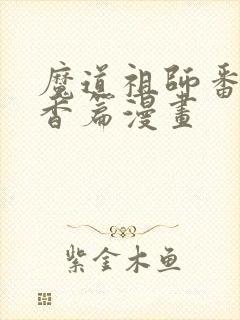 魔道祖師番
香篇漫畫
紫金木鱼